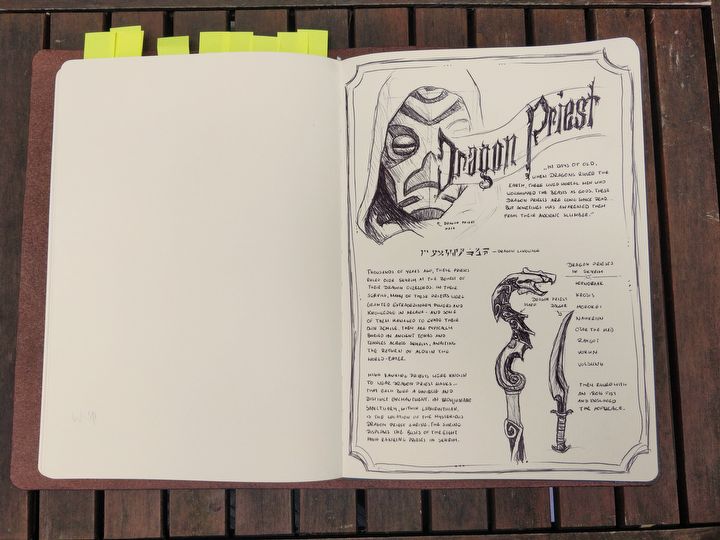 Dragon Priest
"...IN DAYS OF OLD,
WHEN DRAGONS RULED THE
EARTH, THERE LIVED MORTAL MEN WHO
WORSHIPPED THE BEASTS AS GODS. THESE
DRAGON PRIESTS ARE LONG SINCE DEAD...
BUT SOMETHING HAS AWAKENED THEM
FROM THEIR ANCIENT SLUMBER."
DRAGON PRIEST
MASK
— DRAGON LANGUAGE
THOUSANDS OF YEARS AGO, THESE PRIESTS
RULED OVER SKYRIM AT THE BEHEST OF
THEIR DRAGON OVERLORDS. IN THEIR
SERVICE, MANY OF THESE PRIESTS WERE
GRANTED EXTRAORDINARY POWERS AND
KNOWLEDGE IN RETURN - AND SOME
OF THEM MANAGED TO EVADE THEIR
OWN DEMISE. THEY ARE TYPICALLY
BURIED IN ANCIENT TOMBS AND
TEMPLES ACROSS SKYRIM, AWAITING
THE RETURN OF ALDUIN THE
WORLD-EATER.
HIGH RANKING PRIESTS WERE KNOWN
TO WEAR DRAGON PRIEST MASKS -
THAT EACH BORE A UNIQUE AND
DISTINCT ENCHANTMENT. IN BROMJUNAAR
SANCTUARY, WITHIN LABYRINTHIAN,
IS THE LOCATION OF THE MYSTERIOUS
DRAGON PRIEST SHRINE. THE SHRINE
DISPLAYS THE BUSTS OF THE EIGHT
HIGH RANKING PRIESTS IN SKYRIM.
DRAGON PRIEST
STAFF
DRAGON PRIEST
DAGGER
DRAGON PRIESTS
IN SKYRIM
HEVNORAAK
KROSIS
MOROKEI
NAHKRIIN
OTAR THE MAD
RAHGOT
VOKUN
VOLSUNG
THEY RULED WITH
AN IRON FIST
AND ENSLAVED
THE POPULACE.